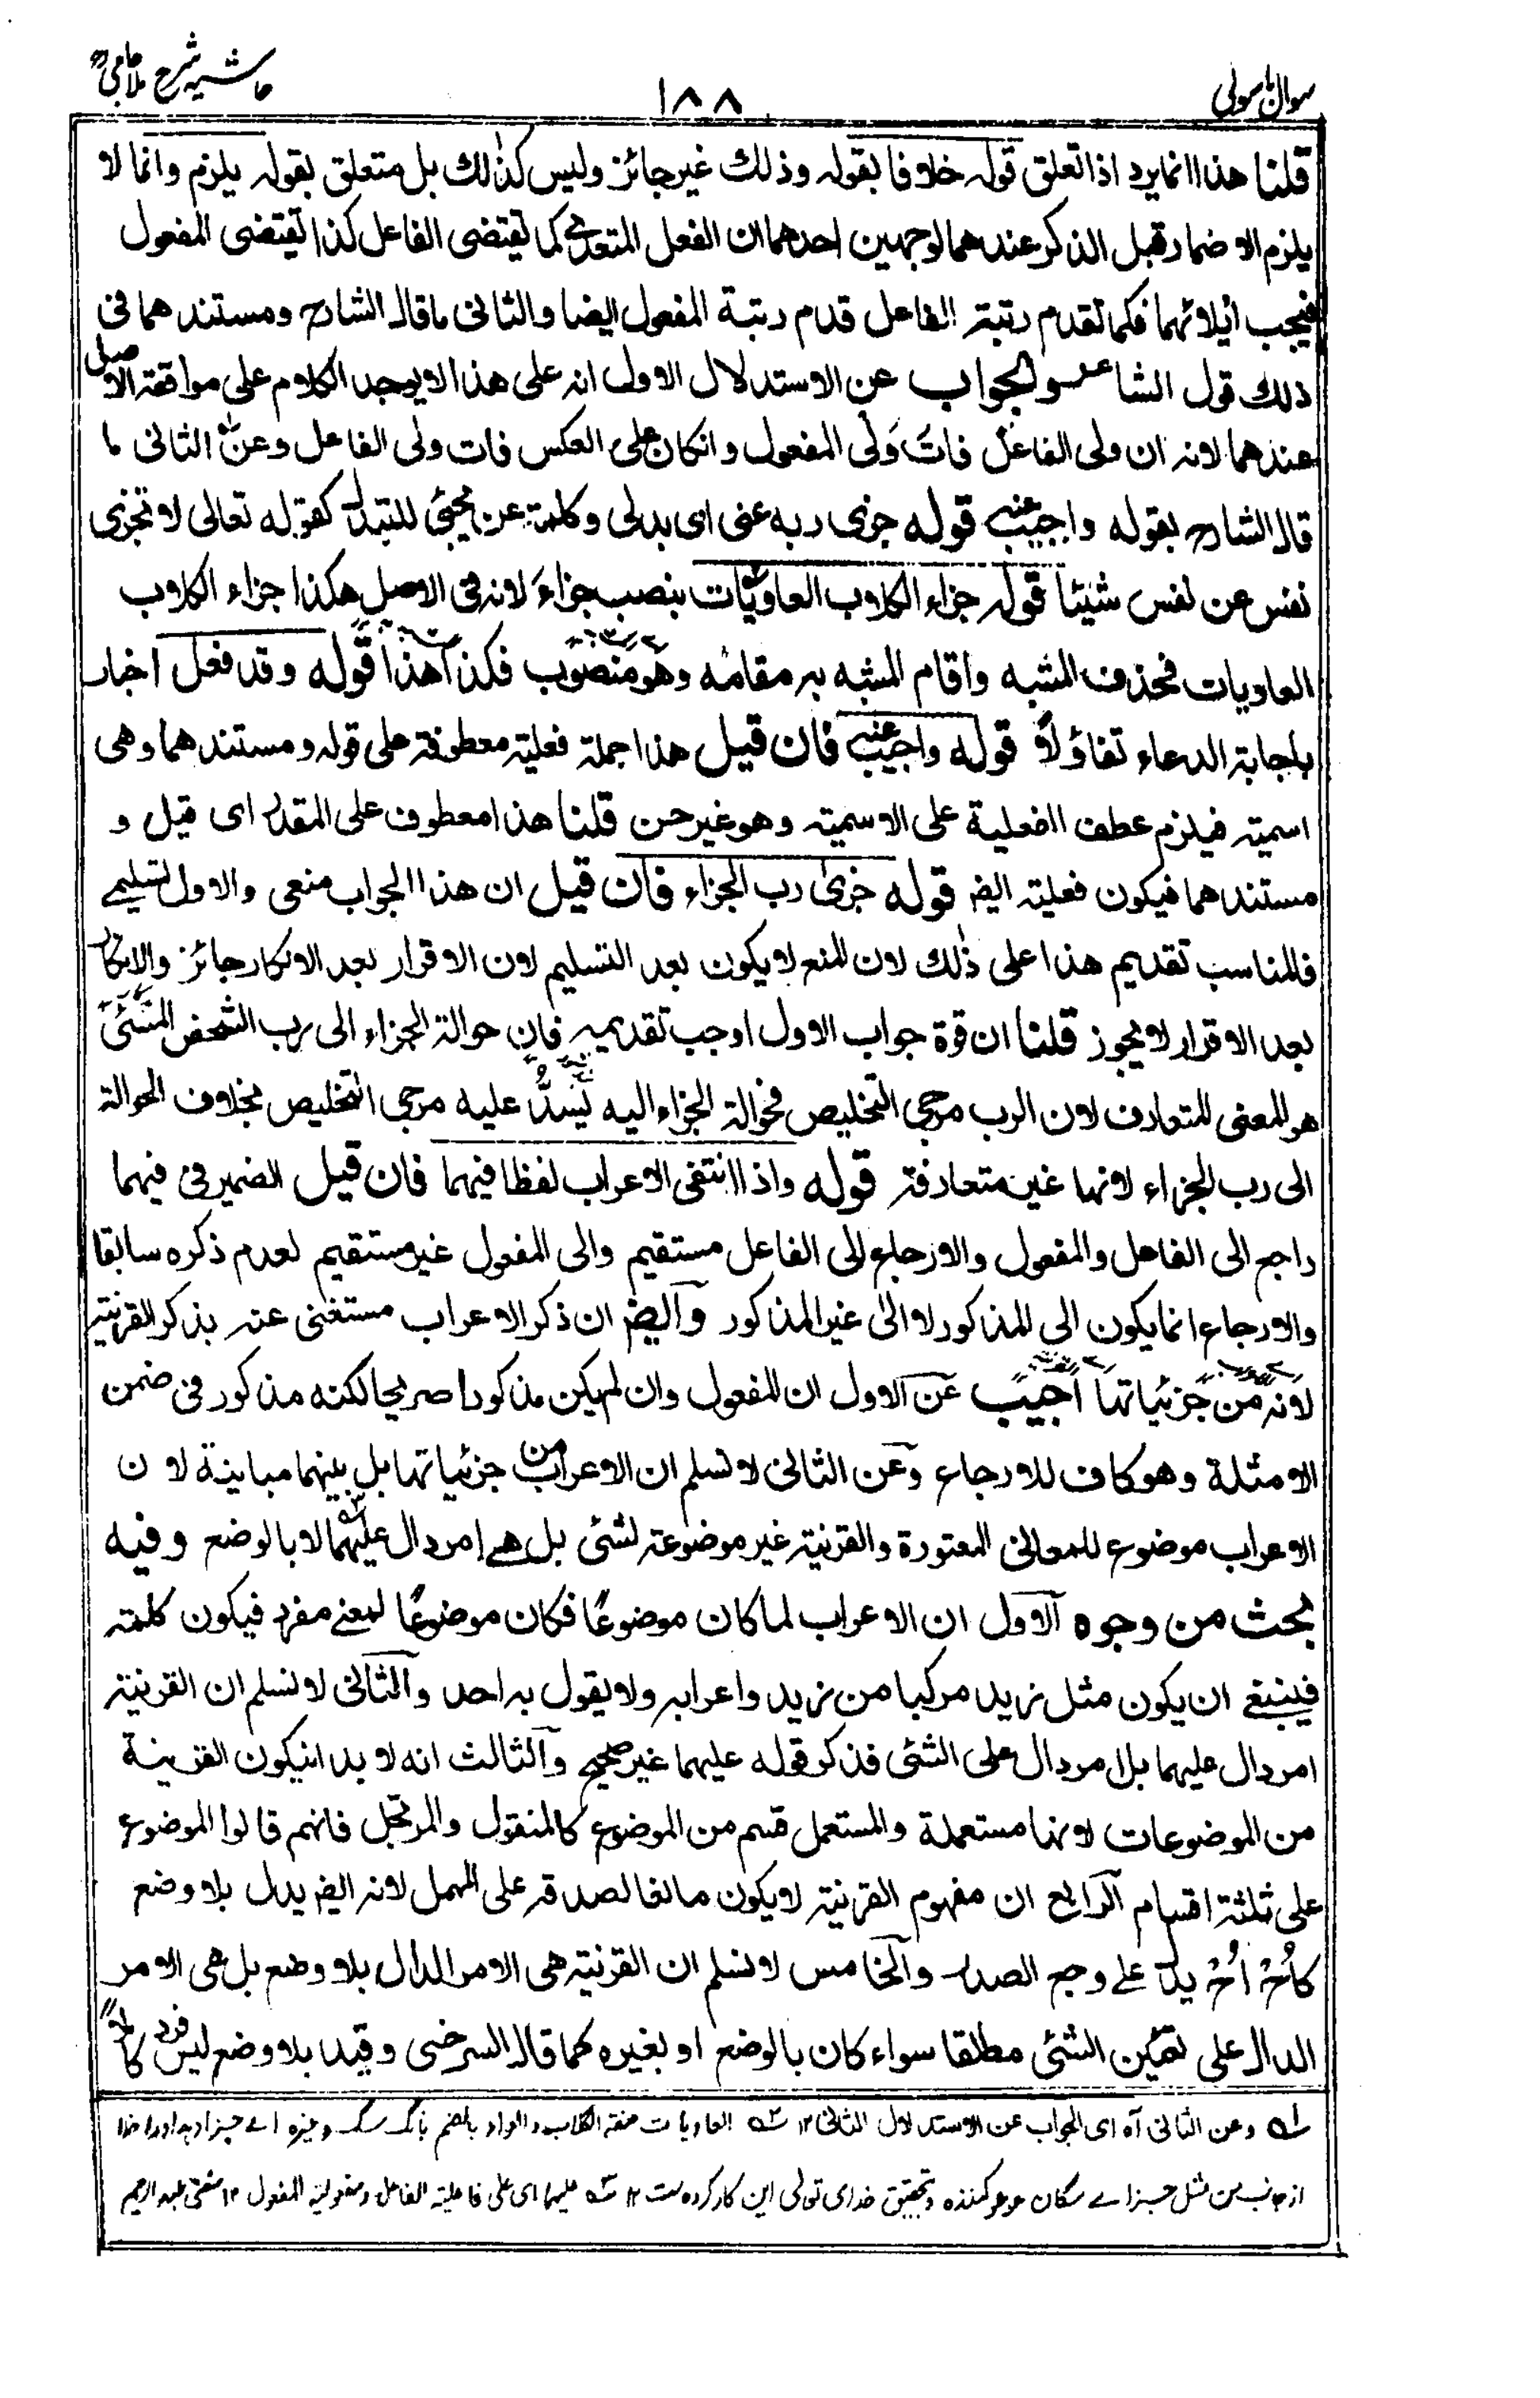 سوال باسولی ١٨٨ حاشیه شرح ملا جامی
قلنا هذا انما يرد اذا تعلق قوله خلافا بقوله وذلك غير جائز وليس كذلك بل متعلق بقوله يلزم وانما لا
يلزم الاضمار قبل الذكر عندهما لوجهين احدهما ان الفعل المتعدي كما تقتضى الفاعل كذا تقتضى المفعول
فيجب ايلائهما فكما تقدم رتبة الفاعل قدم رتبة المفعول ايضا والثانى ما قال الشارح ومستندهما فى
ذلك قول الشاعر والجواب عن الاستدلال الاول انه على هذا لا يوجد الكلام على موافقة الاصل
عندهما لانه ان ولى الفاعل فات ولى المفعول وانكان على العكس فات ولى الفاعل وعن الثانى ما
قال الشارح بقوله واجيب عنه قوله جزى ربه عنى اى بدلى وكلمة عن يجئ للتبدل كقوله تعالى لا تجزى
نفس عن نفس شيئا قوله جزاء الكلاب العاويات بنصب جزاءَ لانه فى الاصل هكذا جزاء الكلاب
العاويات فحذف المشبه واقام المشبه به مقامه وهو منصوب فكذا هذا قوله وقد فعل اخبار
باجابة الدعاء تفاؤلاً قوله واجيب عنه فان قيل هذا جملة فعلية معطوفة على قوله ومستندهما وهى
اسمية فيلزم عطف الفعلية على الاسمية وهو غير حسن قلنا هذا معطوف على المقدر اى قيل و
مستندهما فيكون فعلية ايضا قوله جزى رب الجزاء فان قيل ان هذا الجواب منعى والاول تسليمى
فالمناسب تقديم هذا على ذلك لان المنع لا يكون بعد التسليم لان الاقرار بعد الانكار جائز والانكار
بعد الاقرار لا يجوز قلنا ان قوة جواب الاول اوجب تقديمه فان حوالة الجزاء الى رب الشخص المسئ
هو المعنى المتعارف لان الرب مرجى التخليص فحوالة الجزاء اليه يسدُّ عليه مرجى التخليص بخلاف الحوالة
الى رب الجزاء لانها غير متعارفة قوله واذا انتفى الاعراب لفظا فيهما فان قيل الضمير فى فيهما
راجع الى الفاعل والمفعول والارجاع الى الفاعل مستقيم والى المفعول غير مستقيم لعدم ذكره سابقا
والارجاع انما يكون الى المذكور لا الى غير المذكور وايضا ان ذكر الاعراب مستغنى عنه بذكر القرينة
لانه من جزئياتها اجيب عن الاول ان المفعول وان لم يكن مذكورا صريحا لكنه مذكور فى ضمن
الامثلة وهو كاف للارجاع وعن الثانى لا نسلم ان الاعراب من جزئياتها بل بينهما مباينة لان
الاعراب موضوع للمعانى المعتورة والقرينة غير موضوعة لشئ بل هے امر دال عليهما لا بالوضع وفيه
بحث من وجوه الاول ان الاعراب لما كان موضوعًا فكان موضوعًا لمعنى مفرد فيكون كلمة
فينبغى ان يكون مثل زيد مركبا من زيد واعرابه ولا يقول به احد والثانى لا نسلم ان القرينة
امر دال عليهما بل امر دال على الشئ فذكر قوله عليهما غير صحيح والثالث انه لا بد انيكون القرينة
من الموضوعات لانها مستعملة والمستعمل قسم من الموضوع كالمنقول والمرتجل فانهم قالوا الموضوع
على ثلثة اقسام الرابع ان مفهوم القرينة لا يكون مانعا لصدقه على المهمل لانه ايضا يدل بلا وضع
كاُحْ اُحْ يدل على وجع الصدر والخامس لا نسلم ان القرينة هى الامر الدال بلا وضع بل هى الامر
الدال على تعيين الشئ مطلقا سواء كان بالوضع او بغيره كما قال السرخسى وقيد بلا وضع ليس فرد كاملا
له وعن الثانى آه اى الجواب عن الاستدلال الثانى ١٢ ٢ه العاويات صفة الكلاب والعواء بالضم بانگ سگ وغیره اے جزا دہد اورا خدا
از جانب من مثل جزاے سگان عوعو کننده وتحقیق خدای تعالی این کار کرده است ١٢ ٣ه عليهما اى على فاعلية الفاعل ومفعولية المفعول ١٢ مفتی عبدالرحیم